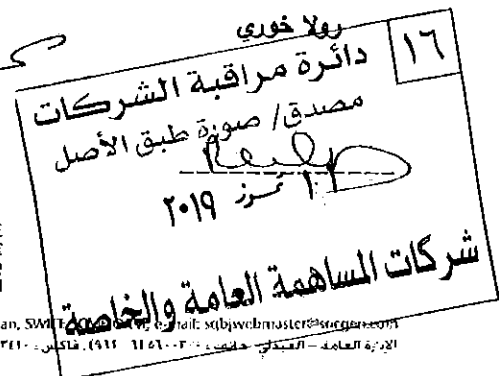 رولا خوري
١٦
دائرة مراقبة الشركات
مصدق/ صورة طبق الأصل
تموز ٢٠١٩
شركات المساهمة العامة والخاصة
e-mail: sgbjwebmaster@socgen.com
الإدارة العامة – العبدلي